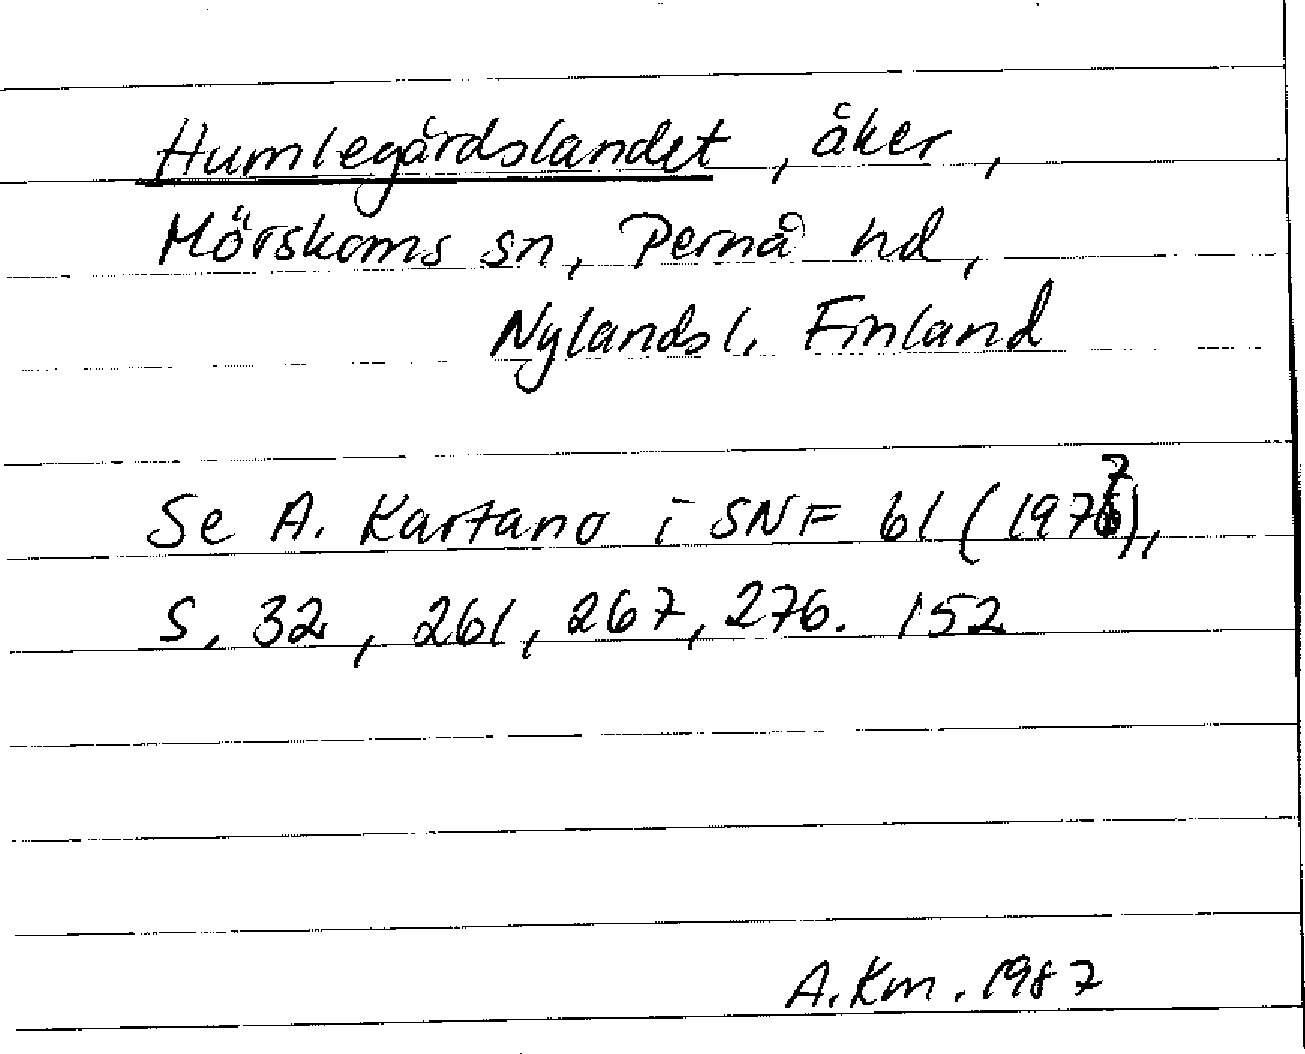 Humlegårdslandet, åker,
Mörskoms sn, Pernå hd,
Nylandsl. Finland
Se A. Kartano i SNF 61 (1977),
S. 32, 261, 267, 276. 152
A. Km. 1987